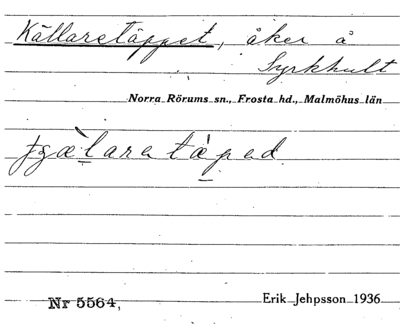 Källaretäppet, åker å
Syrkhult
Norra Rörums sn., Frosta hd., Malmöhus län
Nr 5564,
Erik Jehpsson 1936